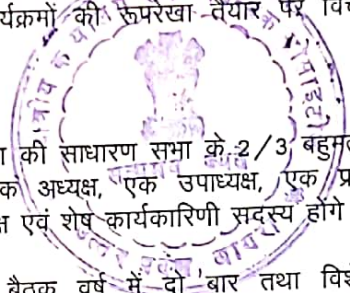 र्यक्रमों की रूपरेखा तैयार पर विच
की साधारण सभा के 2/3 बहुमत
क अध्यक्ष, एक उपाध्यक्ष, एक प्र
क्ष एवं शेष कार्यकारिणी सदस्य होंगे
बैठक वर्ष में दो बार तथा विशे